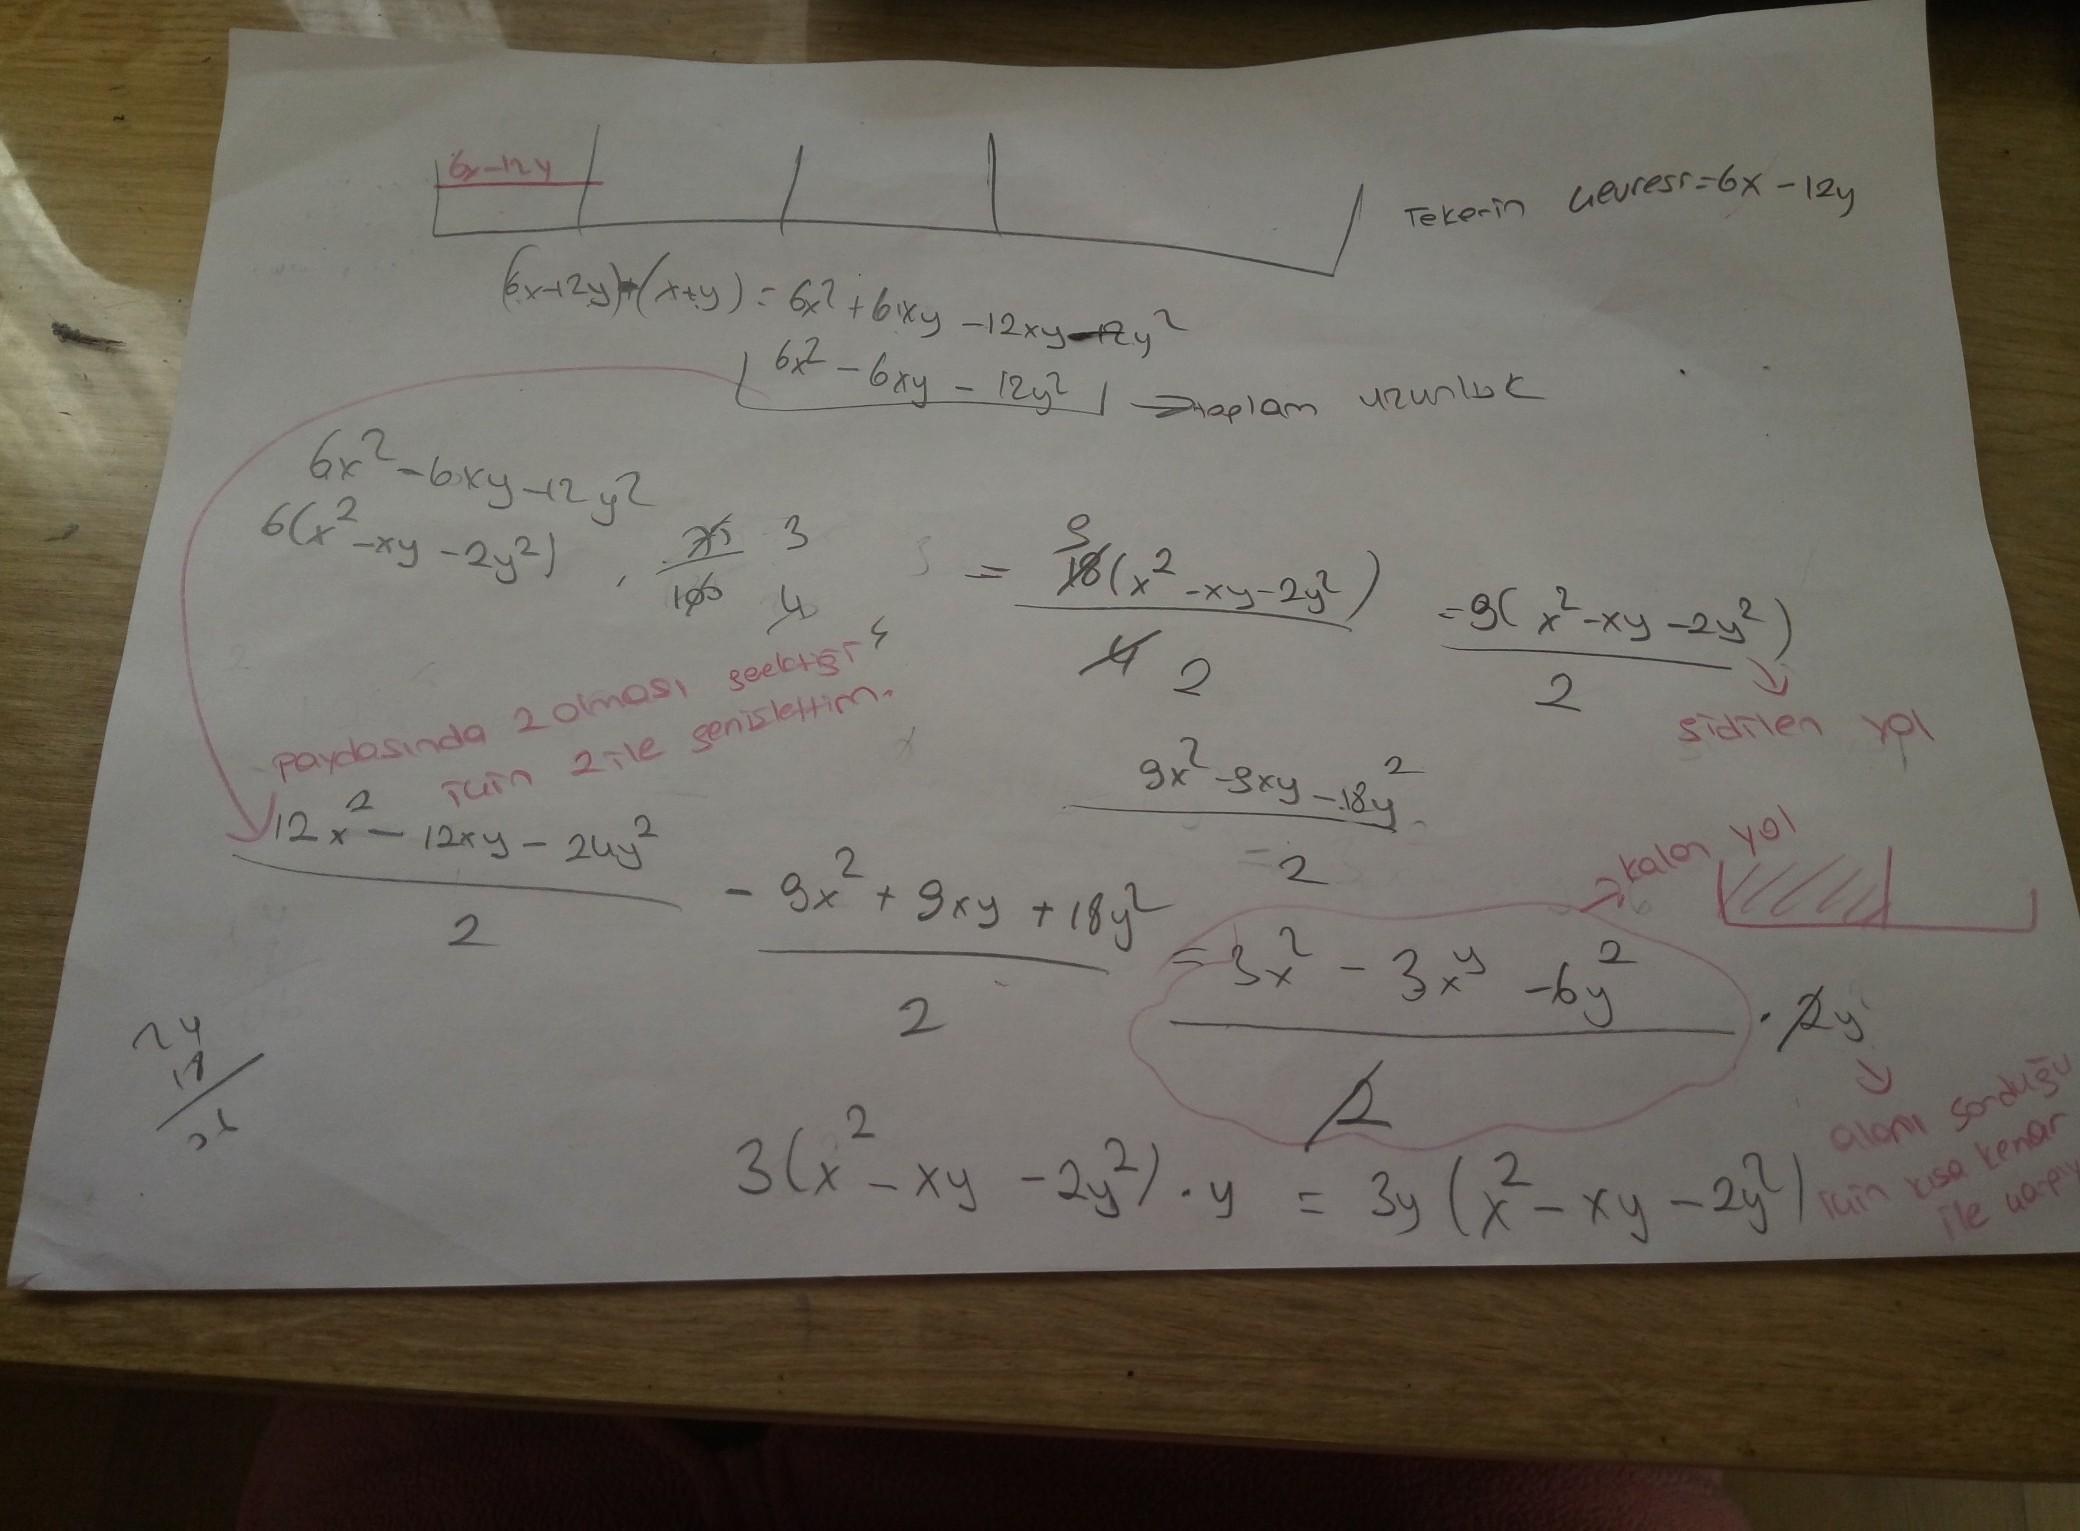 6x-12y
Tekerin çevresi=6x-12y
(6x-12y)(x+y)=6x²+6xy-12xy-12y²
6x²-6xy-12y² →toplam uzunluk
6x²-6xy-12y²
6(x²-xy-2y²) . 75/100 3/4 = 9 18(x²-xy-2y²)/4 2 =9(x²-xy-2y²)/2
gidilen yol
paydasında 2 olması gerektiği
için 2 ile genişlettim.
9x²-9xy-18y²/2
kalan yol
12x²-12xy-24y²/2 -9x²+9xy+18y²/2 =3x²-3xy-6y²/2 . 2y
alanı sorduğu
için kısa kenar
ile çarpı
24
18
3(x²-xy-2y²).y = 3y(x²-xy-2y²)